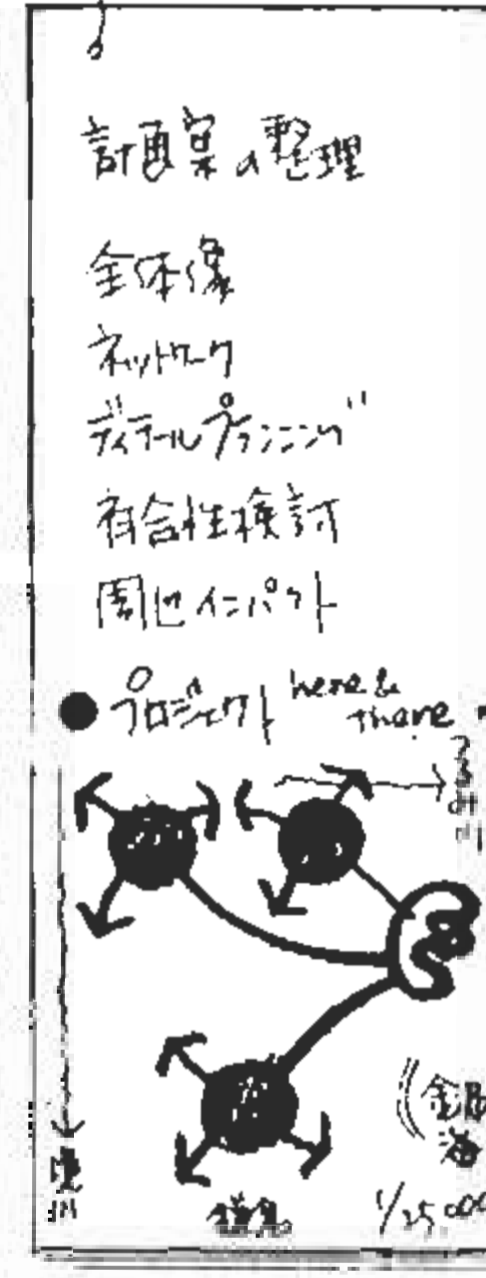 計画案の整理
全体像
ネットワーク
ディテールプランニング
複合性検討
周辺インパクト
● プロジェクト here & there
つるみ川
境川
鎌倉
1/25,000